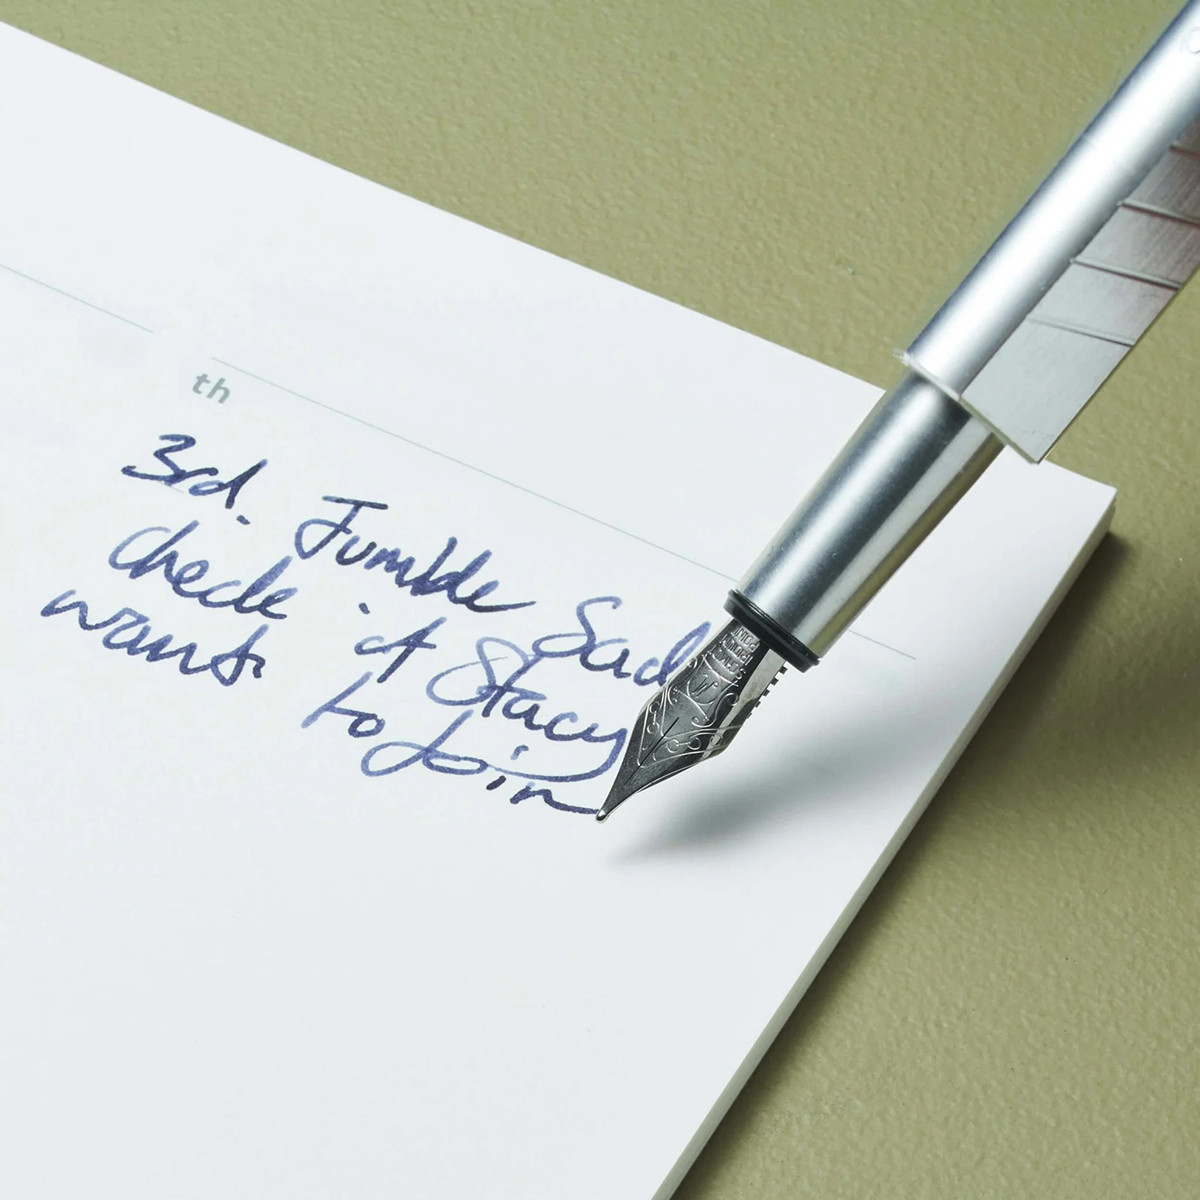 th
3rd. Jumble Sad
check if Stacy
wants to join